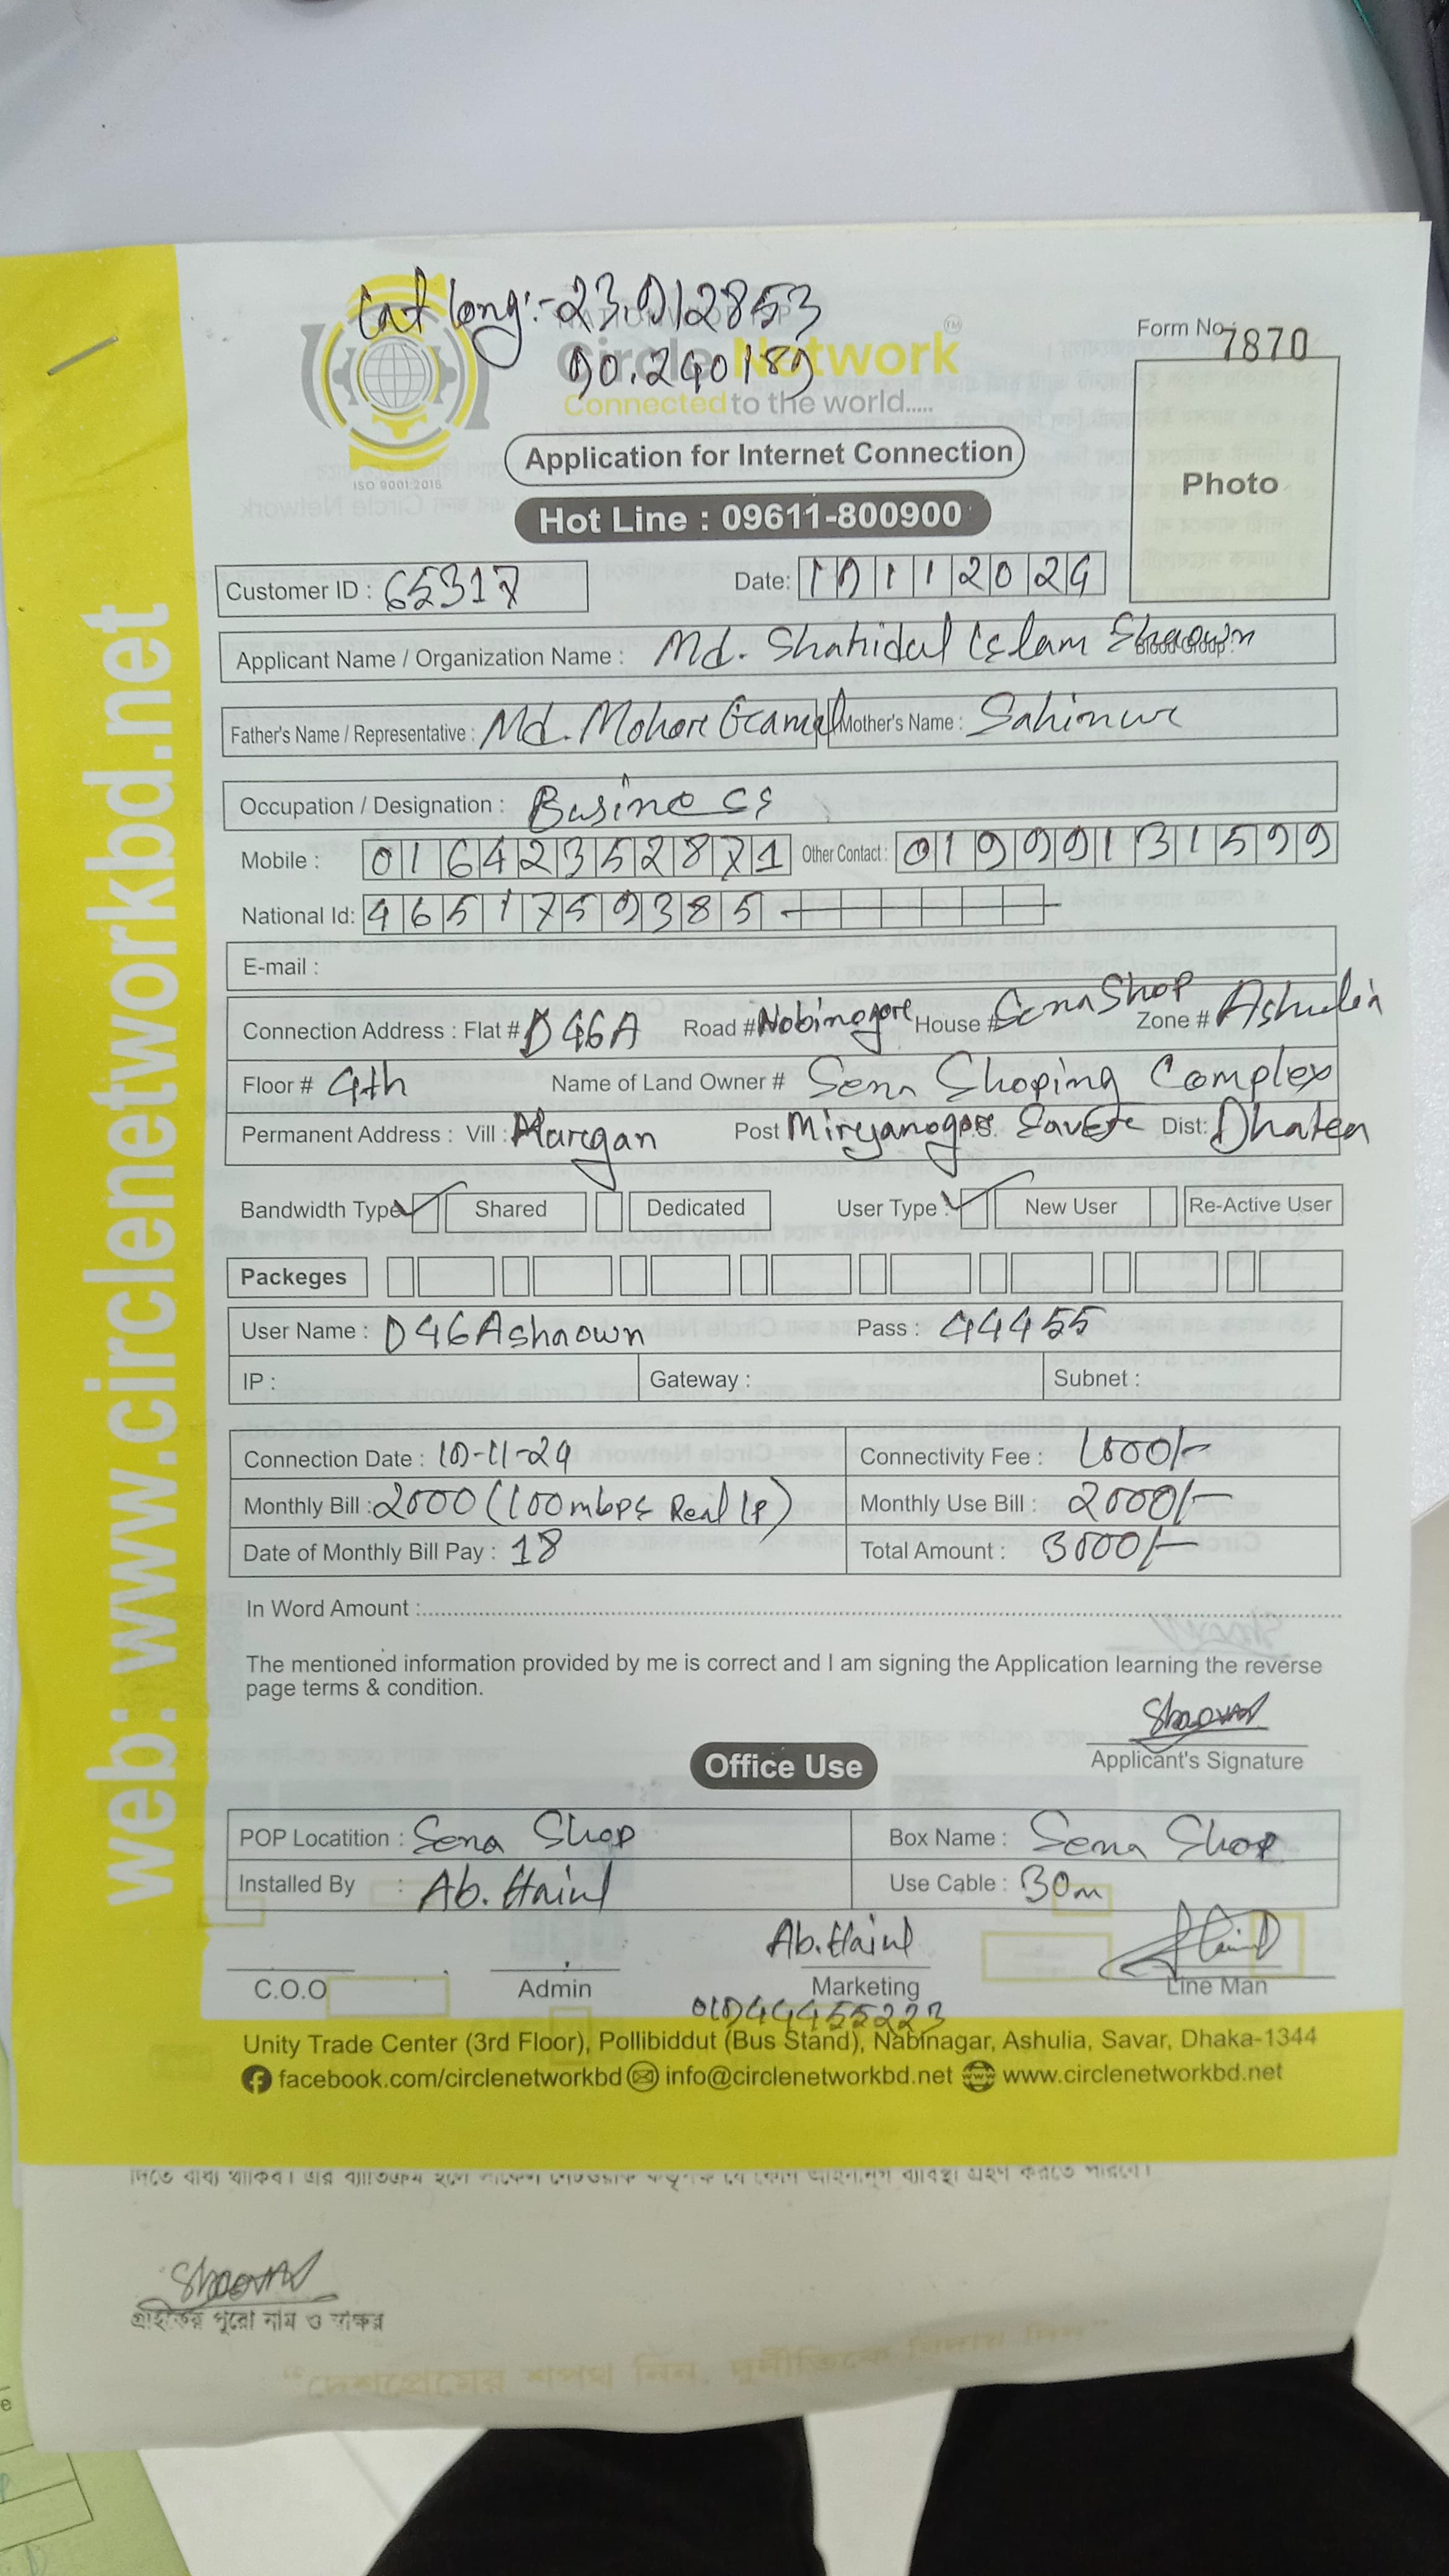 Lat long:-23.912853
90.240189
Circle Network
Connected to the world.....
ISO 9001:2015
Form No: 7870
Photo
Application for Internet Connection
Hot Line : 09611-800900
Customer ID : 65317
Date: 19112024
Applicant Name / Organization Name : Md. Shahidul Islam Shaown
Father's Name / Representative : Md. Mohore
Mother's Name :
Occupation / Designation : Business
Mobile : 01642352871 Other Contact : 01999131599
National Id: 4651759385
E-mail :
Connection Address : Flat # D46A Road # Nobinogore House # Sena Shop Zone # Ashulia
Floor # 4th Name of Land Owner # Sena Shoping Complex
Permanent Address : Vill : Post P.S. Dist:
Bandwidth Type : Shared Dedicated User Type : New User Re-Active User
Packeges
User Name : D46Ashaown Pass : 44455
IP : Gateway : Subnet :
Connection Date : Connectivity Fee : 1000/-
Monthly Bill : 2000 (100mbps Real IP) Monthly Use Bill : 2000/-
Date of Monthly Bill Pay : 18 Total Amount : 3000/-
In Word Amount :
The mentioned information provided by me is correct and I am signing the Application learning the reverse
page terms & condition.
Shaown
Applicant's Signature
Office Use
POP Locatition : Sena Shop Box Name : Sena Shop
Installed By : Ab. Use Cable : 30m
Ab.
C.O.O Admin Marketing Line Man
Unity Trade Center (3rd Floor), Pollibiddut (Bus Stand), Nabinagar, Ashulia, Savar, Dhaka-1344
facebook.com/circlenetworkbd info@circlenetworkbd.net www.circlenetworkbd.net
web: www.circlenetworkbd.net
Shaown
গ্রাহকের পুরো নাম ও স্বাক্ষর
“দেশপ্রেমের শপথ নিন, দুর্নীতিকে বিদায় দিন”